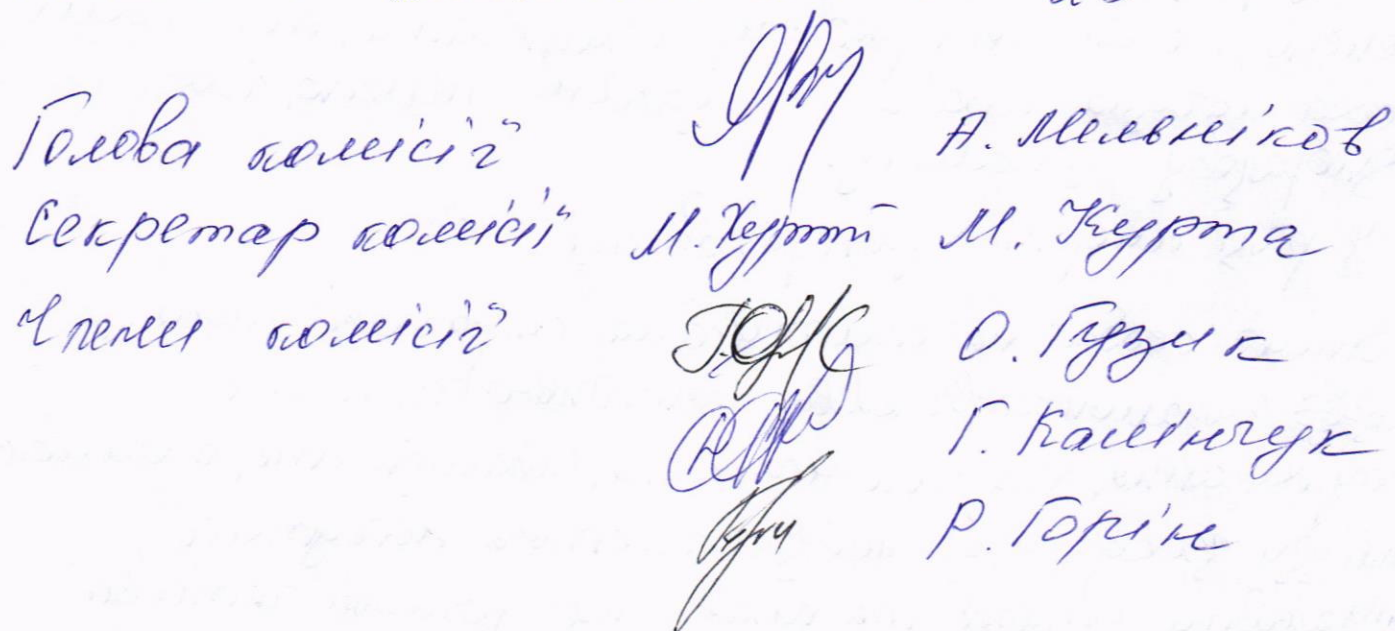 Голова комісії А. Мельніков
Секретар комісії М. Курт М. Курта
Члени комісії О. Гузик
Г. Камінчук
Р. Горін